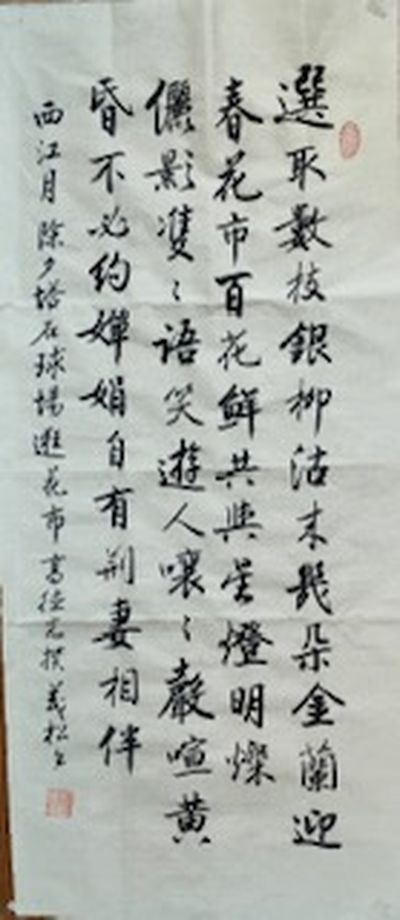 選取數枝銀柳沽來幾朵金蘭迎
春花市百花鮮共與星燈明燦
儷影雙〻語笑遊人嚷〻聲喧黃
昏不必約嬋娟自有荊妻相伴
西江月 除夕塔石球場遊花市 高德 撰 義松